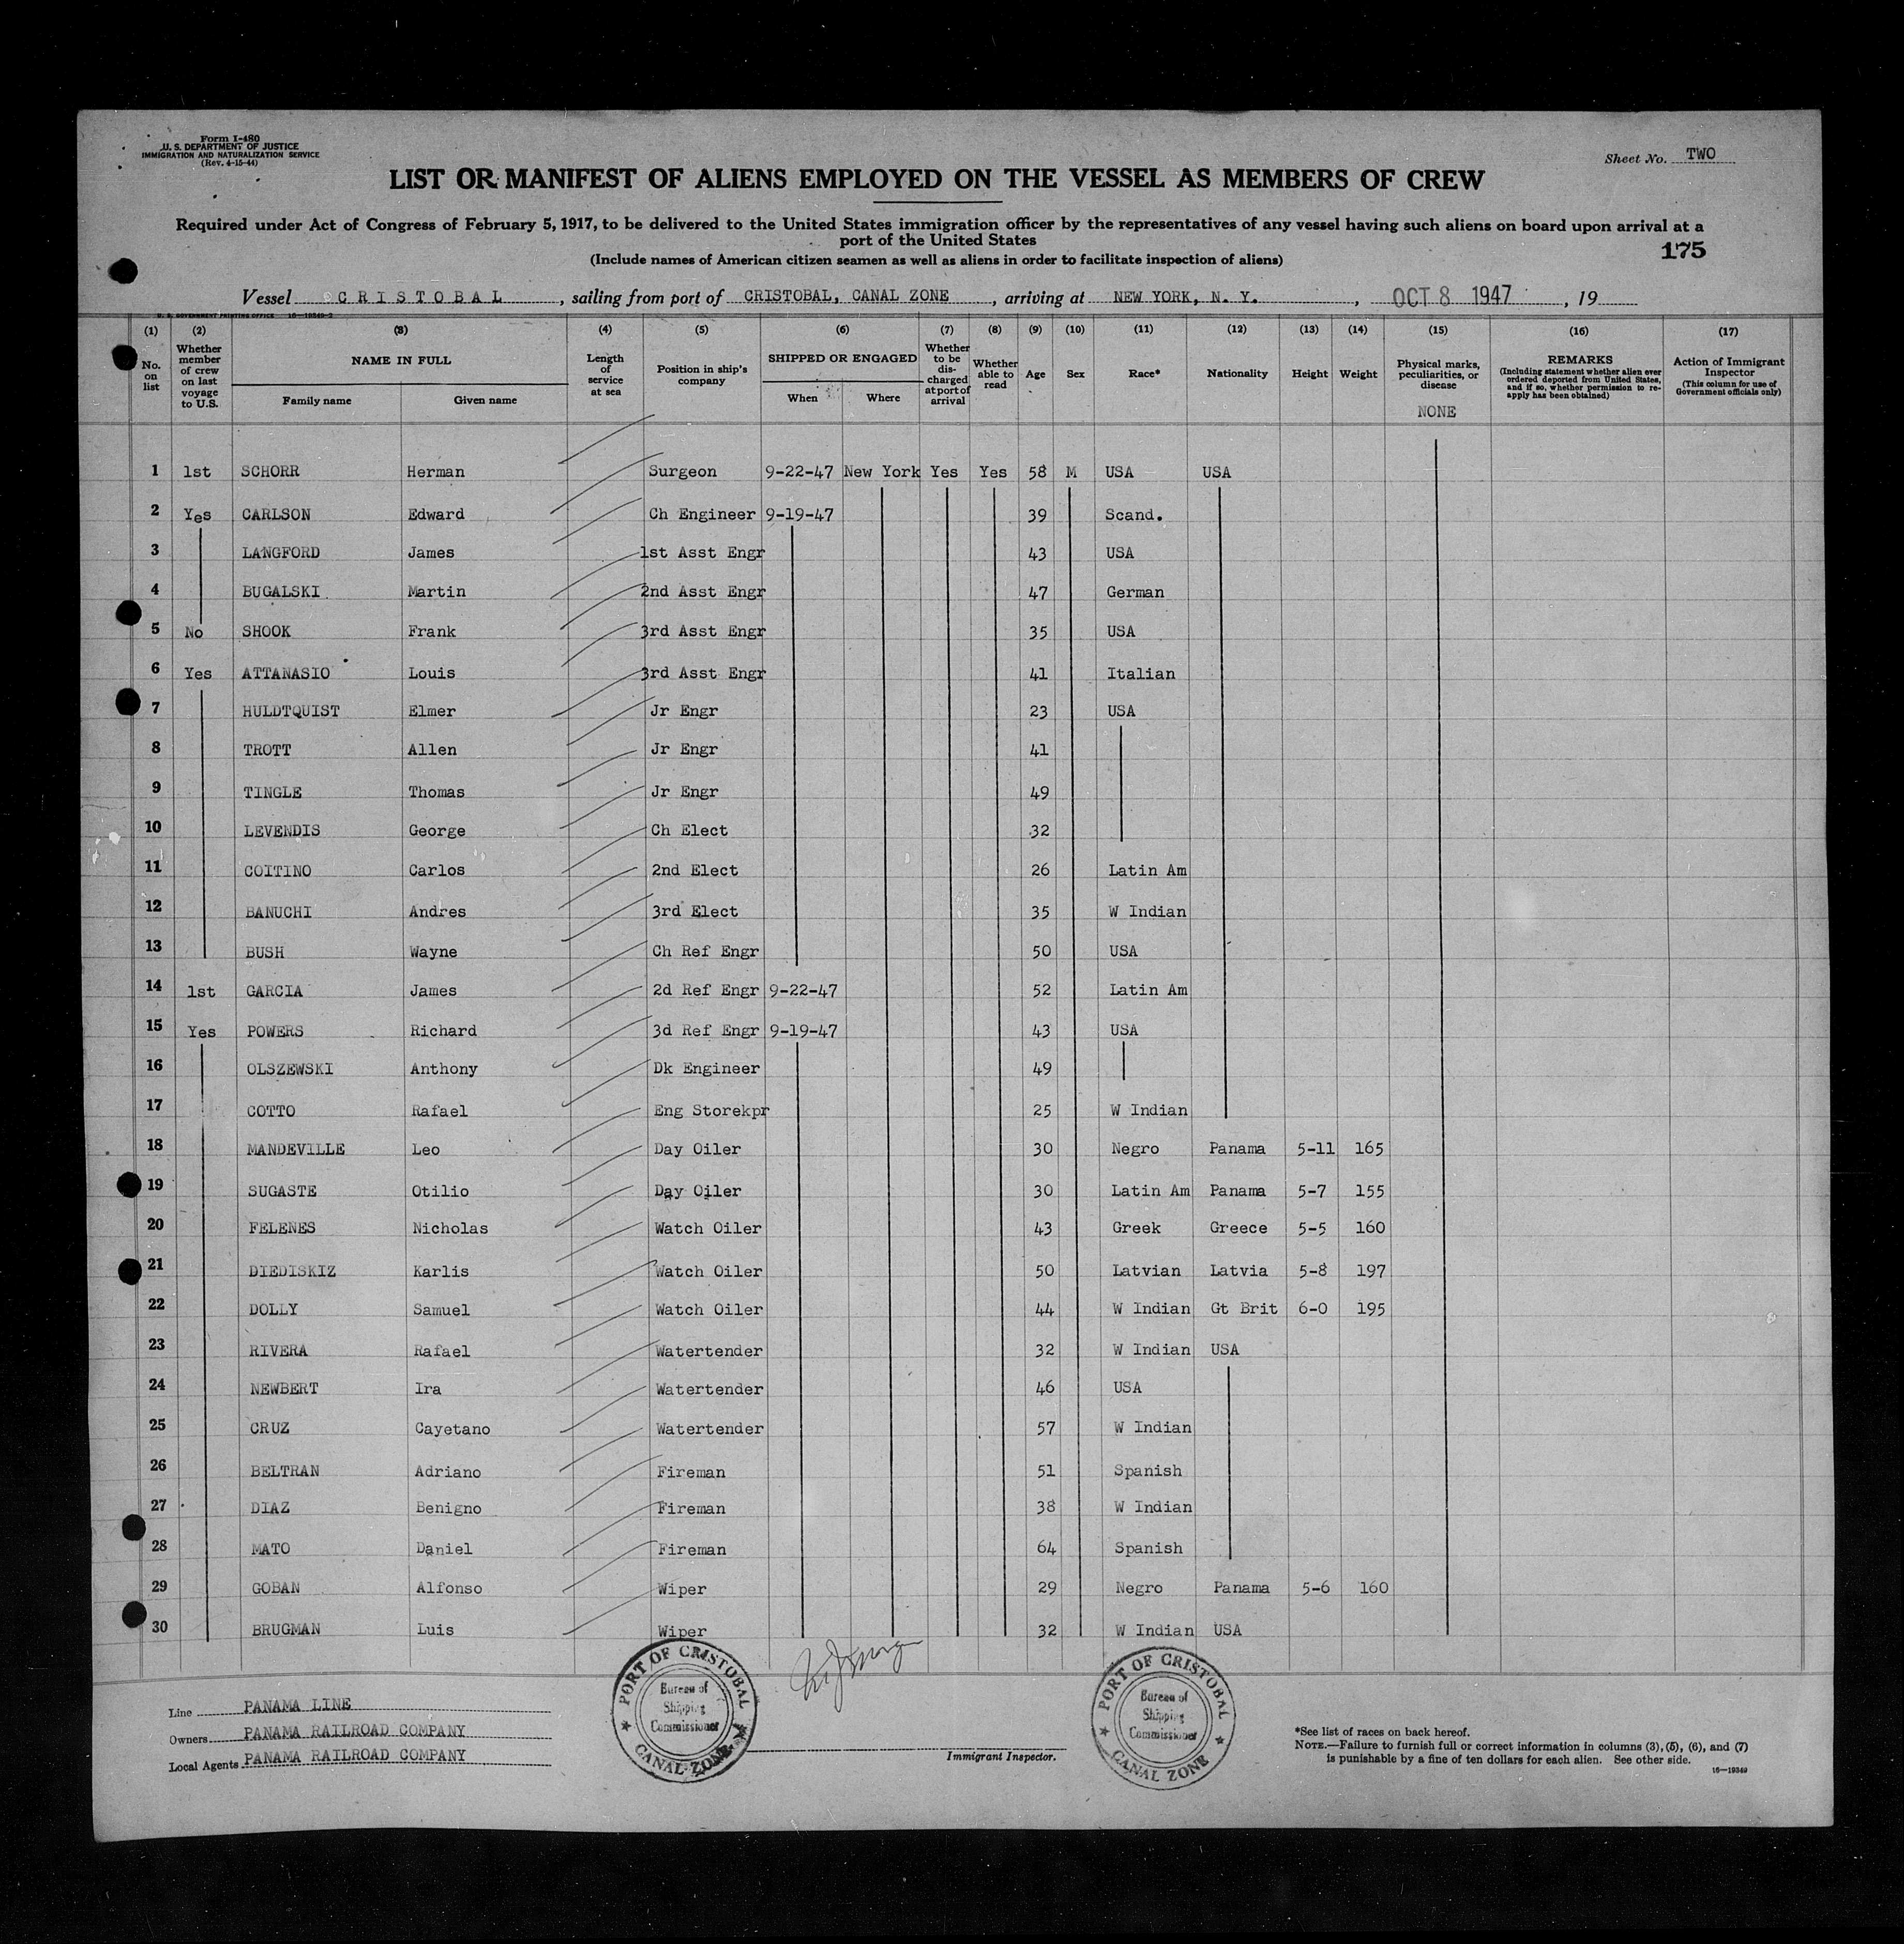 Form I-480
U. S. DEPARTMENT OF JUSTICE
IMMIGRATION AND NATURALIZATION SERVICE
(Rev. 4-15-44)
Sheet No. TWO
LIST OR MANIFEST OF ALIENS EMPLOYED ON THE VESSEL AS MEMBERS OF CREW
Required under Act of Congress of February 5, 1917, to be delivered to the United States immigration officer by the representatives of any vessel having such aliens on board upon arrival at a
port of the United States
175
(Include names of American citizen seamen as well as aliens in order to facilitate inspection of aliens)
Vessel CRISTOBAL, sailing from port of CRISTOBAL, CANAL ZONE, arriving at NEW YORK, N. Y., OCT 8 1947, 19
U. S. GOVERNMENT PRINTING OFFICE 16—19349-2
(1) (2) (3) (4) (5) (6) (7) (8) (9) (10) (11) (12) (13) (14) (15) (16) (17)
No. on list
Whether member of crew on last voyage to U.S.
NAME IN FULL
Family name Given name
Length of service at sea
Position in ship's company
SHIPPED OR ENGAGED
When Where
Whether to be discharged at port of arrival
Whether able to read
Age
Sex
Race*
Nationality
Height
Weight
Physical marks, peculiarities, or disease
NONE
REMARKS
(Including statement whether alien ever ordered deported from United States, and if so, whether permission to re-apply has been obtained)
Action of Immigrant Inspector
(This column for use of Government officials only)
1 1st SCHORR Herman Surgeon 9-22-47 New York Yes Yes 58 M USA USA
2 Yes CARLSON Edward Ch Engineer 9-19-47 39 Scand.
3 LANGFORD James 1st Asst Engr 43 USA
4 BUGALSKI Martin 2nd Asst Engr 47 German
5 No SHOOK Frank 3rd Asst Engr 35 USA
6 Yes ATTANASIO Louis 3rd Asst Engr 41 Italian
7 HULDTQUIST Elmer Jr Engr 23 USA
8 TROTT Allen Jr Engr 41
9 TINGLE Thomas Jr Engr 49
10 LEVENDIS George Ch Elect 32
11 COITINO Carlos 2nd Elect 26 Latin Am
12 BANUCHI Andres 3rd Elect 35 W Indian
13 BUSH Wayne Ch Ref Engr 50 USA
14 1st GARCIA James 2d Ref Engr 9-22-47 52 Latin Am
15 Yes POWERS Richard 3d Ref Engr 9-19-47 43 USA
16 OLSZEWSKI Anthony Dk Engineer 49
17 COTTO Rafael Eng Storekpr 25 W Indian
18 MANDEVILLE Leo Day Oiler 30 Negro Panama 5-11 165
19 SUGASTE Otilio Day Oiler 30 Latin Am Panama 5-7 155
20 FELENES Nicholas Watch Oiler 43 Greek Greece 5-5 160
21 DIEDISKIZ Karlis Watch Oiler 50 Latvian Latvia 5-8 197
22 DOLLY Samuel Watch Oiler 44 W Indian Gt Brit 6-0 195
23 RIVERA Rafael Watertender 32 W Indian USA
24 NEWBERT Ira Watertender 46 USA
25 CRUZ Cayetano Watertender 57 W Indian
26 BELTRAN Adriano Fireman 51 Spanish
27 DIAZ Benigno Fireman 38 W Indian
28 MATO Daniel Fireman 64 Spanish
29 GOBAN Alfonso Wiper 29 Negro Panama 5-6 160
30 BRUGMAN Luis Wiper 32 W Indian USA
Line PANAMA LINE
Owners PANAMA RAILROAD COMPANY
Local Agents PANAMA RAILROAD COMPANY
PORT OF CRISTOBAL
Bureau of
Shipping
Commissioner
CANAL ZONE
Immigrant Inspector.
PORT OF CRISTOBAL
Bureau of
Shipping
Commissioner
CANAL ZONE
*See list of races on back hereof.
NOTE.—Failure to furnish full or correct information in columns (3), (5), (6), and (7)
is punishable by a fine of ten dollars for each alien. See other side.
16—19349